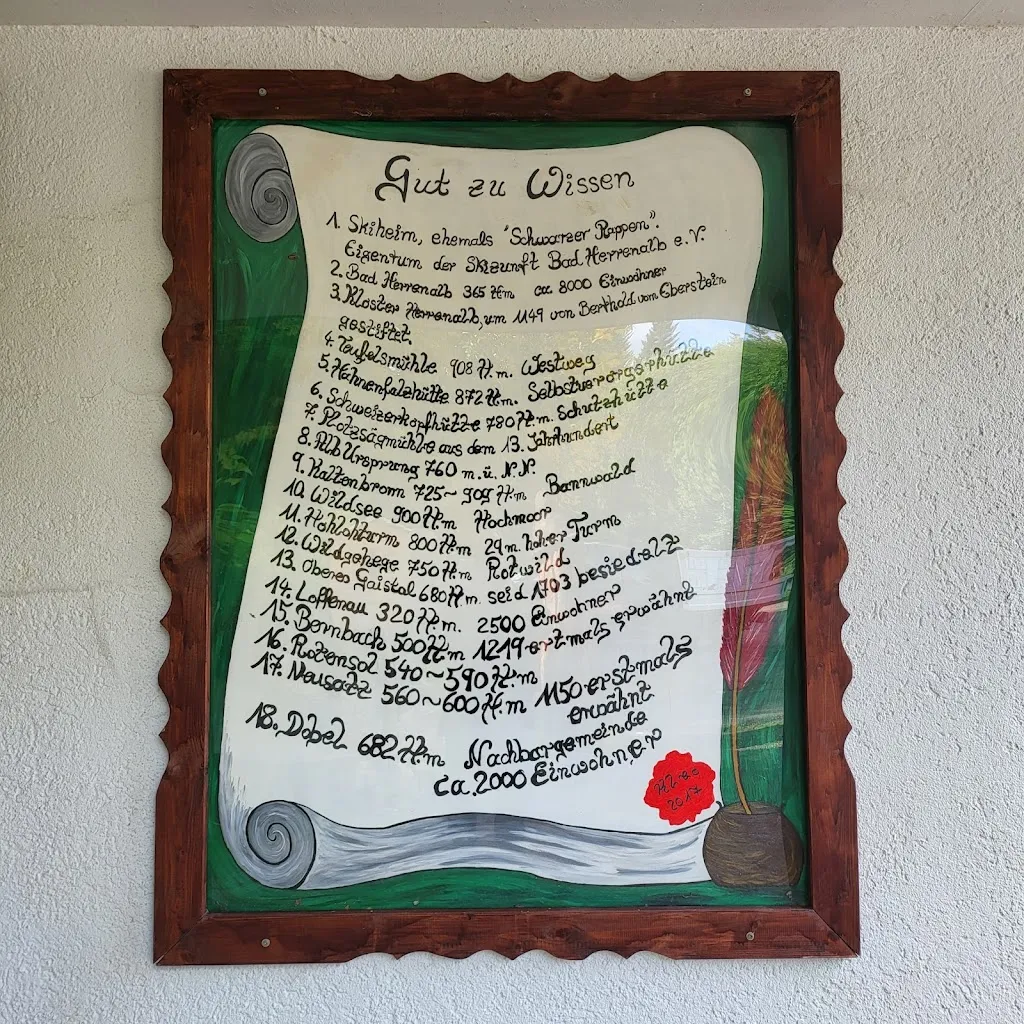 Gut zu Wissen
1. Skiheim, ehemals "Schwarzer Rappen".
Eigentum der Skizunft Bad Herrenalb e.V.
2. Bad Herrenalb 365 H.m ca. 8000 Einwohner
3. Kloster Herrenalb, um 1149 von Berthold vom Eberstein
gestiftet.
4. Teufelsmühle 908 H.m. Westweg
5. Hahnenfalzhütte 872 H.m. Selbstversorgerhütte
6. Schweizerkopfhütte 780 H.m. Schutzhütte
7. Plotzsägmühle aus dem 13. Jahrhundert
8. Alb Ursprung 760 m.ü. N.N.
9. Kaltenbronn 725~909 H.m Bannwald
10. Wildsee 900 H.m Hochmoor
11. Hohlohturm 800 H.m 29 m. hoher Turm
12. Wildgehege 750 H.m Rotwild
13. Oberes Gaistal 680 H.m. seid 1703 besiedelt
14. Loffenau 320 H.m. 2500 Einwohner
15. Bernbach 500 H.m 1219 erstmals erwähnt
16. Rotensol 540~590 H.m
17. Neusatz 560~600 H.m 1150 erstmals
erwähnt
18. Dobel 682 H.m Nachbargemeinde
ca. 2000 Einwohner
2017